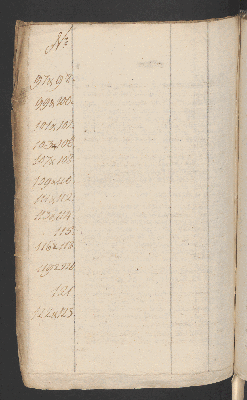 No
97 & 98.
99 & 100.
101 & 102.
107 & 108.
109 & 110.
111 & 112.
113 & 114.
115.
119 & 120.
121.
122 & 123.